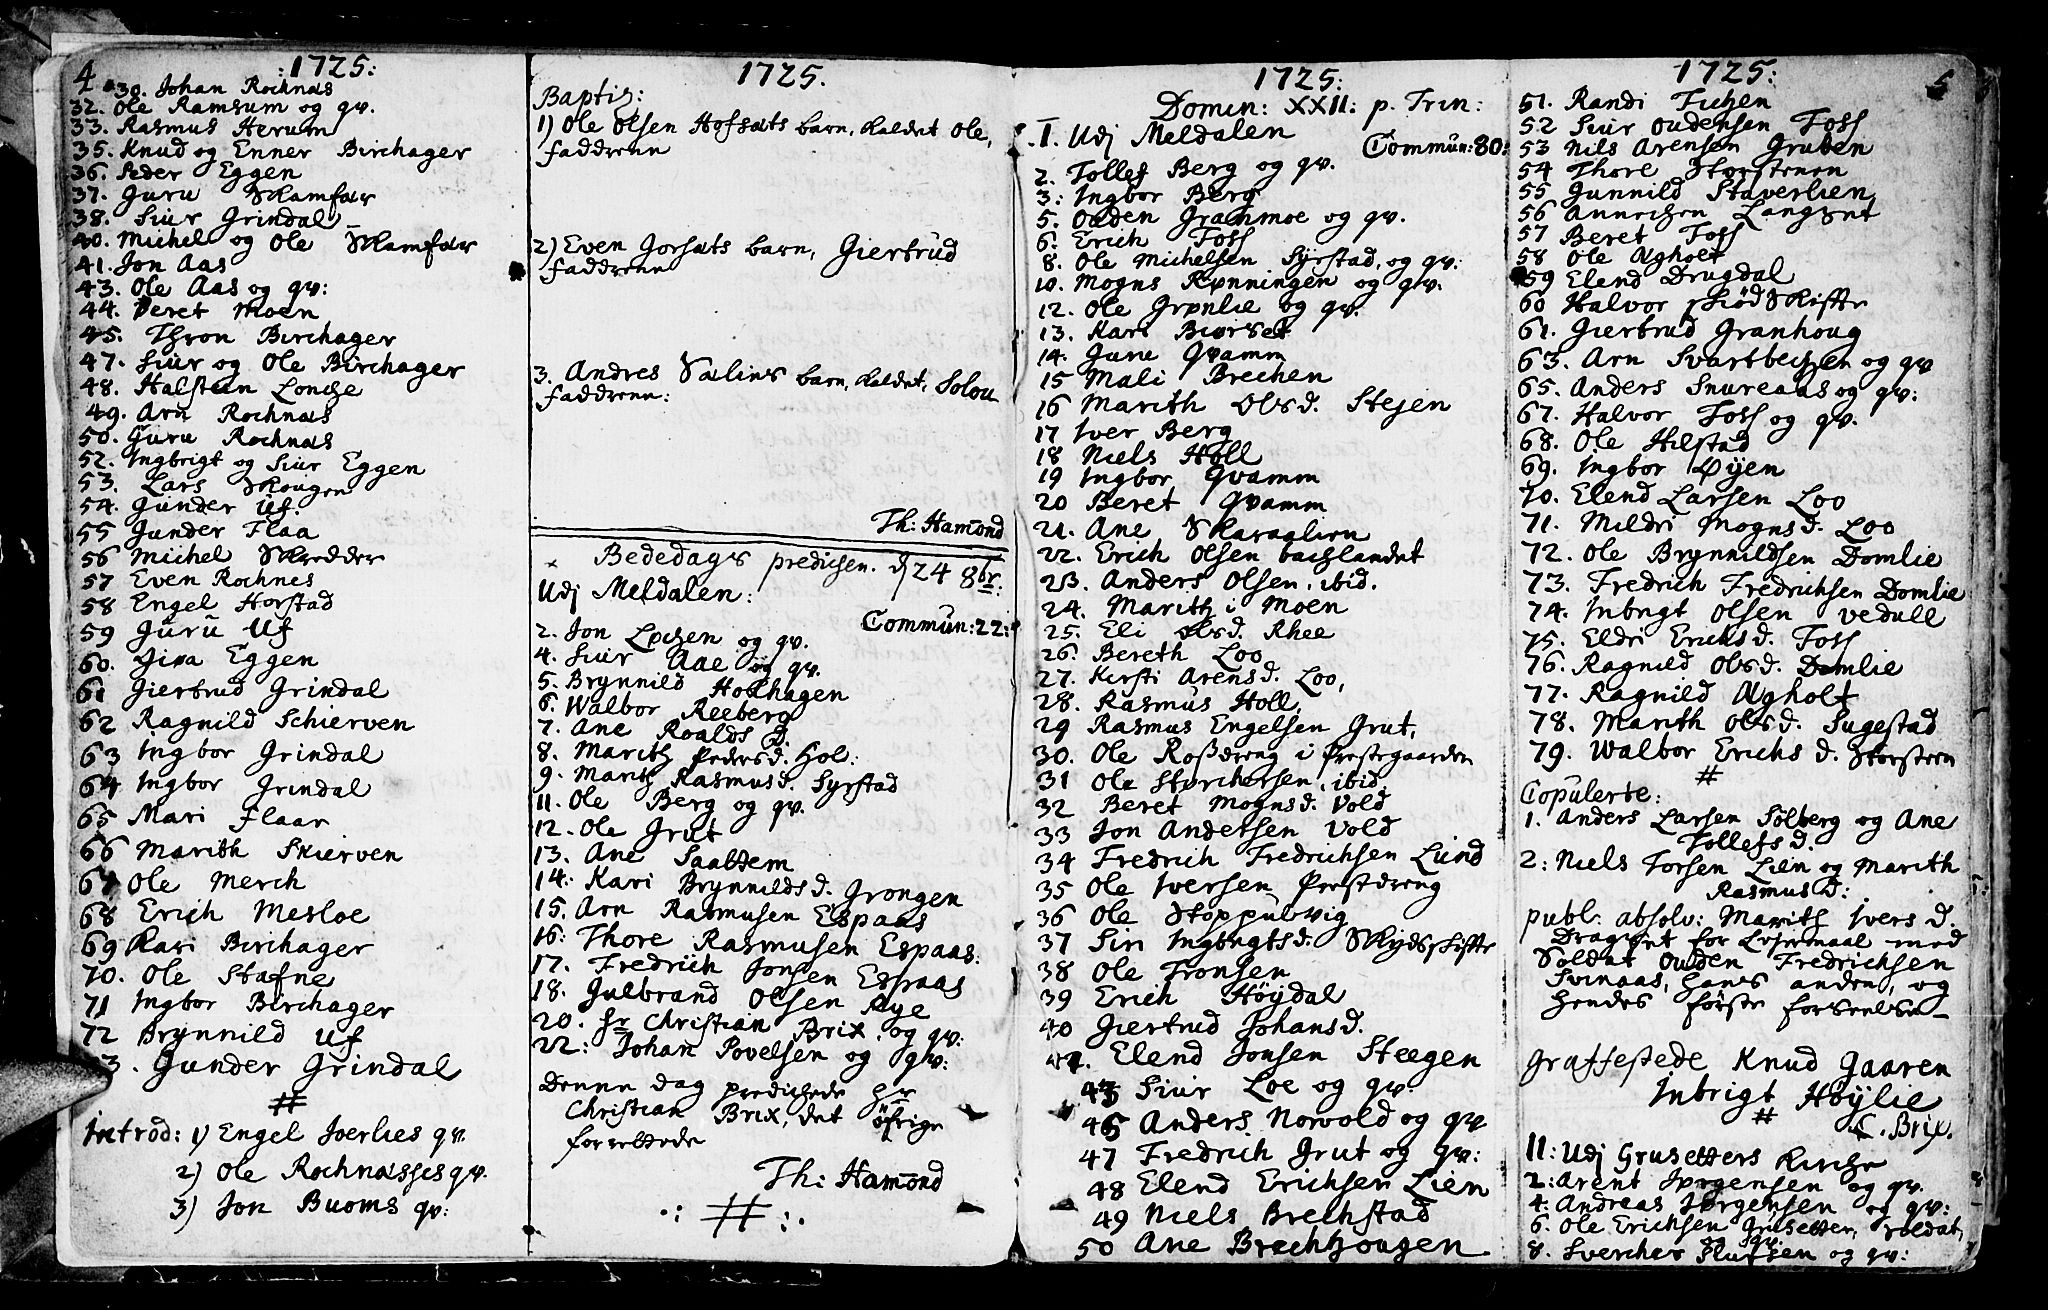 4
:1725:
30. Johan Rochnæs
32. Ole Ramsum og qv.
33. Rasmus Herum
35. Knud og Enner Birchager
36. Peder Eggen
37. Guru Skamfær
38. Siur Grindal
40. Michel og Ole Skamfær
41. Jon Aas
43. Ole Aas og qv:
44. Beret Moen
45. Thron Birchager
47. Siur og Ole Birchager
48. Halsteen Lonche
49. Arn Rochnæs
50. Guru Rochnæs
52. Ingbrigt og Siur Eggen
53. Lars Skougen
54. Gunder Uf.
55 Gunder Flaa
56 Michel Skredder
57 Even Rochnes
58 Engel Horstad
59 Guru Uf
60. Eggen
61 Giertrud Grindal
62 Ragnild Schierven
63 Ingbor Grindal
64 Ingbor Grindal
65 Mari Flaar
66 Marith Skierven
67 Ole Merch
68 Erich Mesloe
69 Kari Birchager
70. Ole Stafne
71 Ingbor Birchager
72 Brynnild Uf
73. Gunder Grindal
#
Introd: 1) Engel Joerlies qv.
2) Ole Rochnæsses qv.
3) Jon Buoms qv:
1725.
Baptiz:
1) Ole Olsen Hofsæts barn, kaldet Ole,
faddrene
2) Even Jorsæts barn, Giertrud
faddrene
3. Andres Sælins barn, kaldet, Solou
faddrene:
Th: Hamond
Bededags predichen. d 24 8br:
Udj Meldalen:
Commun: 22:
2. Jon Lochen og qv.
4. Siur Aae og qv.
5. Brynnild Holhagen
6. Walbor Reeberg
7. Ane Roalds d.
8. Marith Peders d. Hol:
9. Marit Rasmus d. Syrstad
11. Ole Berg og qv.
12. Ole Grut
13. Ane Saltem
14. Kari Brynnilds d. Grongen
15. Arn Rasmusen Espaas
16: Thore Rasmusen Espaas:
17. Fredrich Jonsen Espaas
18. Gulbrand Olsen Rye
20. hr Christian Brix, og qv:
22: Johan Povelsen og qv:
Denne dag predichede hr
Christian Brix, det øfrige
forrettede
Th: Hamond
.: # :.
1725:
Domin: XXII: p. Trin:
1. Udj Meldalen
Commun: 80:
2. Tollef Berg og qv.
3: Ingbor Berg
5. Ouden Grammoe og qv.
6. Erich Foss
8. Ole Michelsen Syrstad, og qv:
10. Mogns Rønningen og qv.
12. Ole Grønlie og qv.
13. Kari Biørset
14. June Qvamm
15 Mali Brechen
16 Marith Ols d. Stejen
17 Iver Berg
18 Niels Holl
19 Ingbor Qvamm
20 Beret Qvamm
21. Ane Skaraglien
22. Erich Olsen bachlandet
23. Anders Olsen, ibid.
24. Marith i Moen
25. Eli Ols d. Rhee
26. Bereth Loo
27. Kirsti Arens d. Loo,
28. Rasmus Holl,
29 Rasmus Engelsen Grut,
30. Ole Rossdreng i Prestegaarden
31 Ole Størchersen, ibid.
32 Beret Mogns d. Vold
33 Jon Andersen Vold
34 Fredrich Fredrichsen Lund
35 Ole Iversen Prestdreng
36 Ole Stoppulvig
37 Siri Ingbrigts d. Skydsskifte
38 Ole Tronsen
39 Erich Höydal
40 Giertrud Johans d.
Elend Jonsen Steegen
43 Siur Loe og qv.
45 Anders Norvold og qv
47 Fredrich Grut og qv:
48 Elend Erichsen Lien
49 Niels Brechstad
50 Ane Brechhougen
1725:
5
51. Randi Fichen
52 Siur Oudensen Foss
53 Nils Arensen Gruben
54 Thore Storsteen
55 Gunnild Staverlien
56 Annichen Langset
57 Beret Foss
58 Ole Agholt
59 Elend Drugdal
60 Halvor Skiødskifte
61. Giertrud Granhoug
63. Arn Svartbechen og qv
65. Anders Snureaas og qv:
67. Halvor Foss og qv.
68. Ole Hilstad
69. Ingbor Øyen
70. Elend Larsen Loo
71. Mildri Mogns d. Loo
72. Ole Brynnildsen Domlie
73. Fredrich Fredrichsen Domlie
74. Inbrigt Olsen vedull
75. Eldri Erichs d. Foss
76. Ragnild Ols d. Domlie
77. Ragnild Agholt
78. Marith Ols d. Sugestad
79. Walbor Erichs d. Storsteen
#
Copulerte:
1. Anders Larsen Solberg og Ane
Tollefs d.
2: Niels Torsen Lien og Marith
Rasmus d:
publ: absolv: Marith Ivers d.
Dragset for Lejermaal med
Soldat Ouden Fredrichsen
Svinaas, hans anden, og
hendes første forseelse
graffestede Knud Gaaren
Inbrigt Höylie
#
C. Brix.
11: Udj Grusetters Kirche
2: Arent Jørgensen og qv.
4: Andreas Jørgensen og qv:
6. Ole Erichsen Grusetter, soldat,
og qv.
8. Svercher Flufsen og qv: